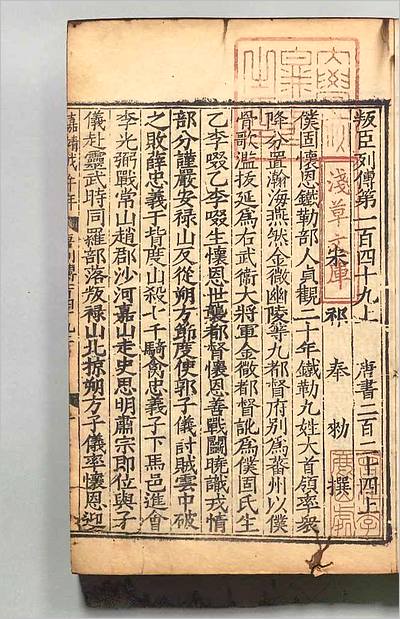 叛臣列傳第一百四十九上　唐書二百二十四上
宋　祁　奉　勑　撰
僕固懷恩鐵勒部人貞觀二十年鐵勒九姓大首領率衆
降分置瀚海燕然金微幽陵等九都督府別爲蕃州以僕
骨歌濫拔延爲右武衛大將軍金微都督訛爲僕固氏生
乙李啜乙李啜生懷恩世襲都督懷恩善戰鬭曉識戎情
部分謹嚴安祿山反從朔方節度使郭子儀討賊雲中破
之敗薛忠義于背度山殺七千騎禽忠義子下馬邑進會
李光弼戰常山趙郡沙河嘉山走史思明肅宗即位與子
儀赴靈武時同羅部落叛祿山北掠朔方子儀率懷恩迎
淺草文庫